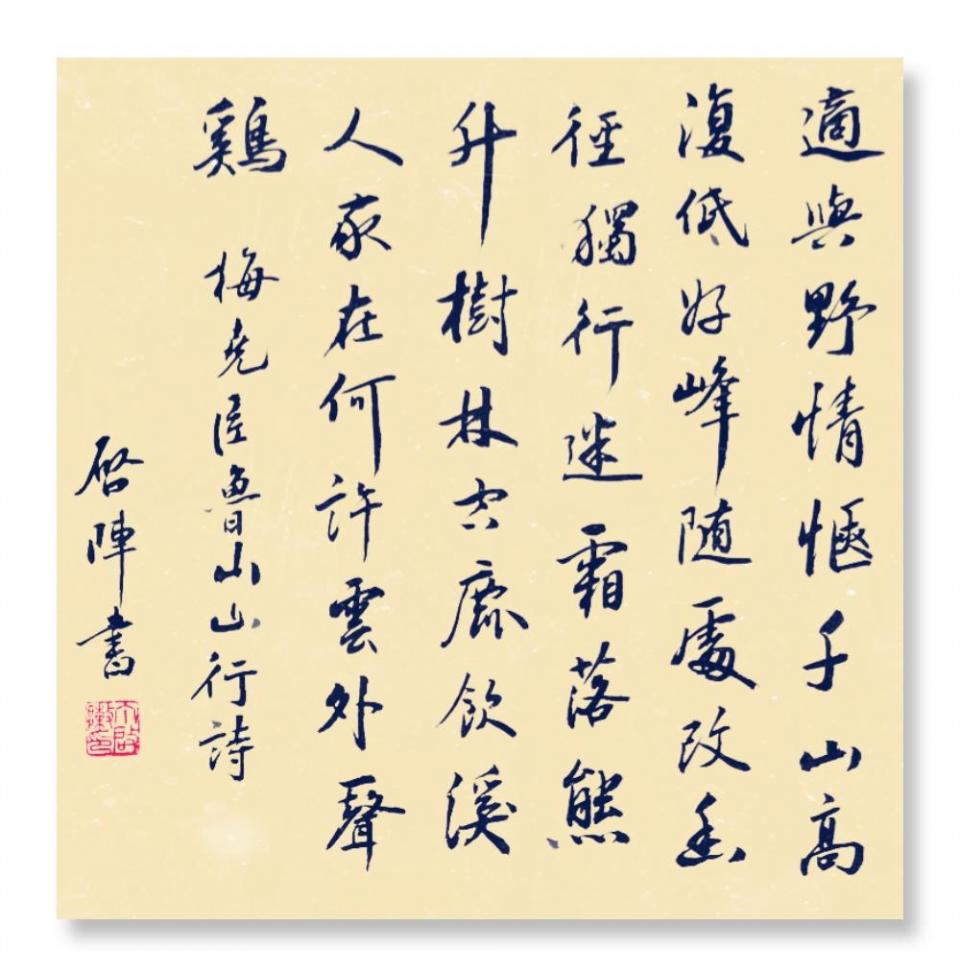 適與野情愜千山高
復低好峰随處改幽
徑獨行迷霜落熊
升樹林空鹿飲溪
人家在何許雲外聲
鷄 梅尭臣魯山山行詩
啓陣書